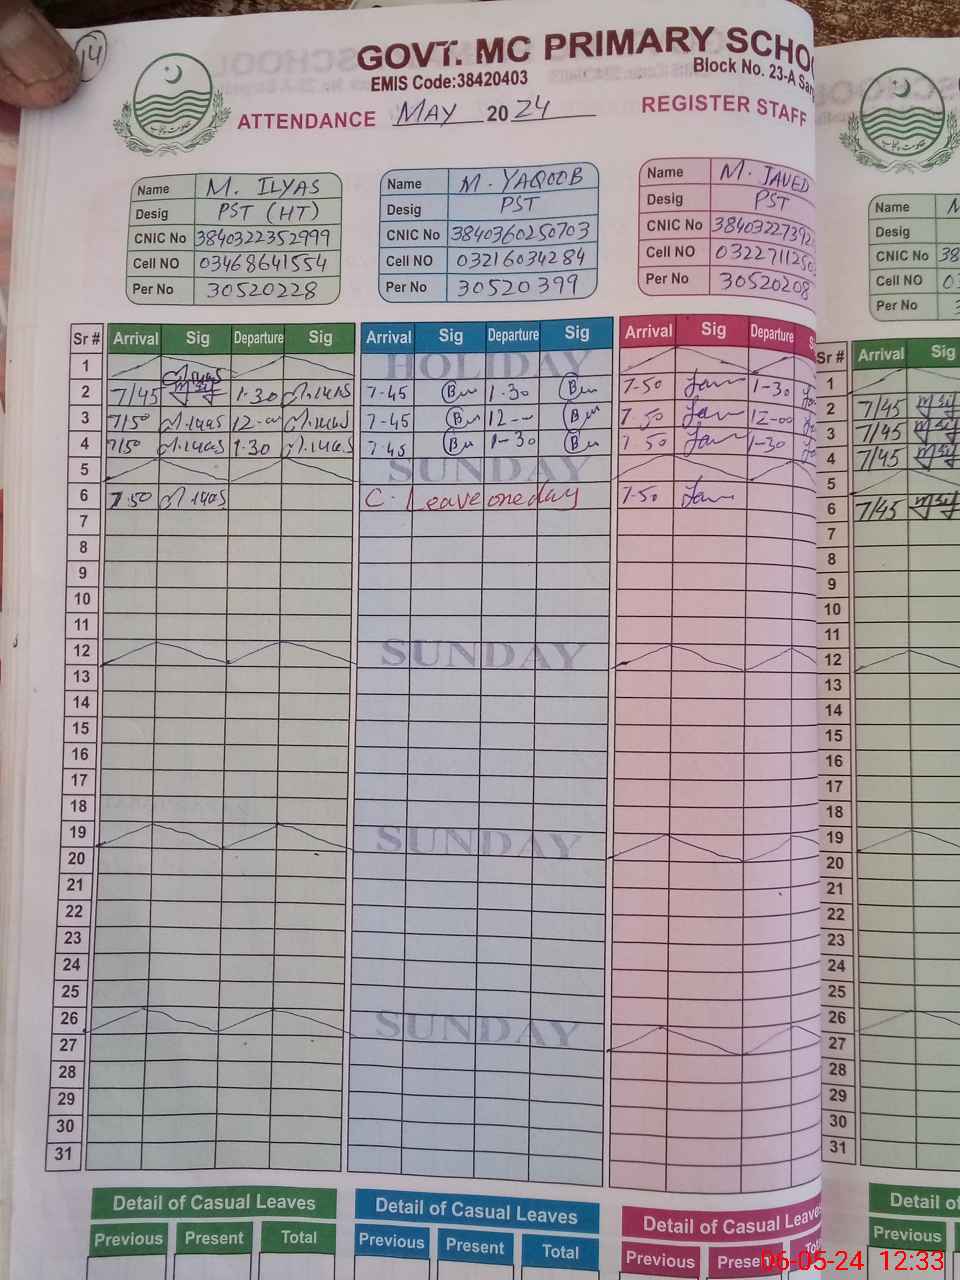 14
GOVT. MC PRIMARY SCHO
EMIS Code:38420403
Block No. 23-A Sar
ATTENDANCE MAY 2024 REGISTER STAFF
حکومت پنجاب
Name M. ILYAS
Desig PST (HT)
CNIC No 3840322352999
Cell NO 03468641554
Per No 30520228
Name M. YAQOOB
Desig PST
CNIC No 3840360250703
Cell NO 03216034284
Per No 30520399
Name M. JAVED
Desig PST
CNIC No 38403227392
Cell NO 0322711250
Per No 30520208
Name M
Desig
CNIC No 38
Cell NO 03
Per No 3
Sr # Arrival Sig Departure Sig Arrival Sig Departure Sig Arrival Sig Departure S
1 HOLIDAY
2 7/45 1-30 7-45 1-30 7-50 1-30
3 7/50 12-00 7-45 12-00 7-50 12-00
4 7/50 1-30 7-45 1-30 7-50 1-30
5 SUNDAY
6 7-50 C. Leave one day 7-50
7
8
9
10
11
12 SUNDAY
13
14
15
16
17
18
19 SUNDAY
20
21
22
23
24
25
26 SUNDAY
27
28
29
30
31
Sr # Arrival Sig
1
2 7/45
3 7/45
4 7/45
5
6 7/45
7
8
9
10
11
12
13
14
15
16
17
18
19
20
21
22
23
24
25
26
27
28
29
30
31
Detail of Casual Leaves
Previous Present Total
Detail of Casual Leaves
Previous Present Total
Detail of Casual Leaves
Previous Present Tot
Detail of
Previous
06-05-24 12:33